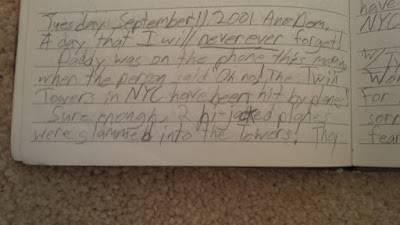 Tuesday, September 11 2001 Anno Dom.
A day that I will never ever forget!
Daddy was on the phone this morning
when the person said "Oh no! The Twin
Towers in NYC have been hit by planes!"
Sure enough, 2 hi-jacked planes
were slammed into the towers. They
have
NYC
w/
for
sorr
fear